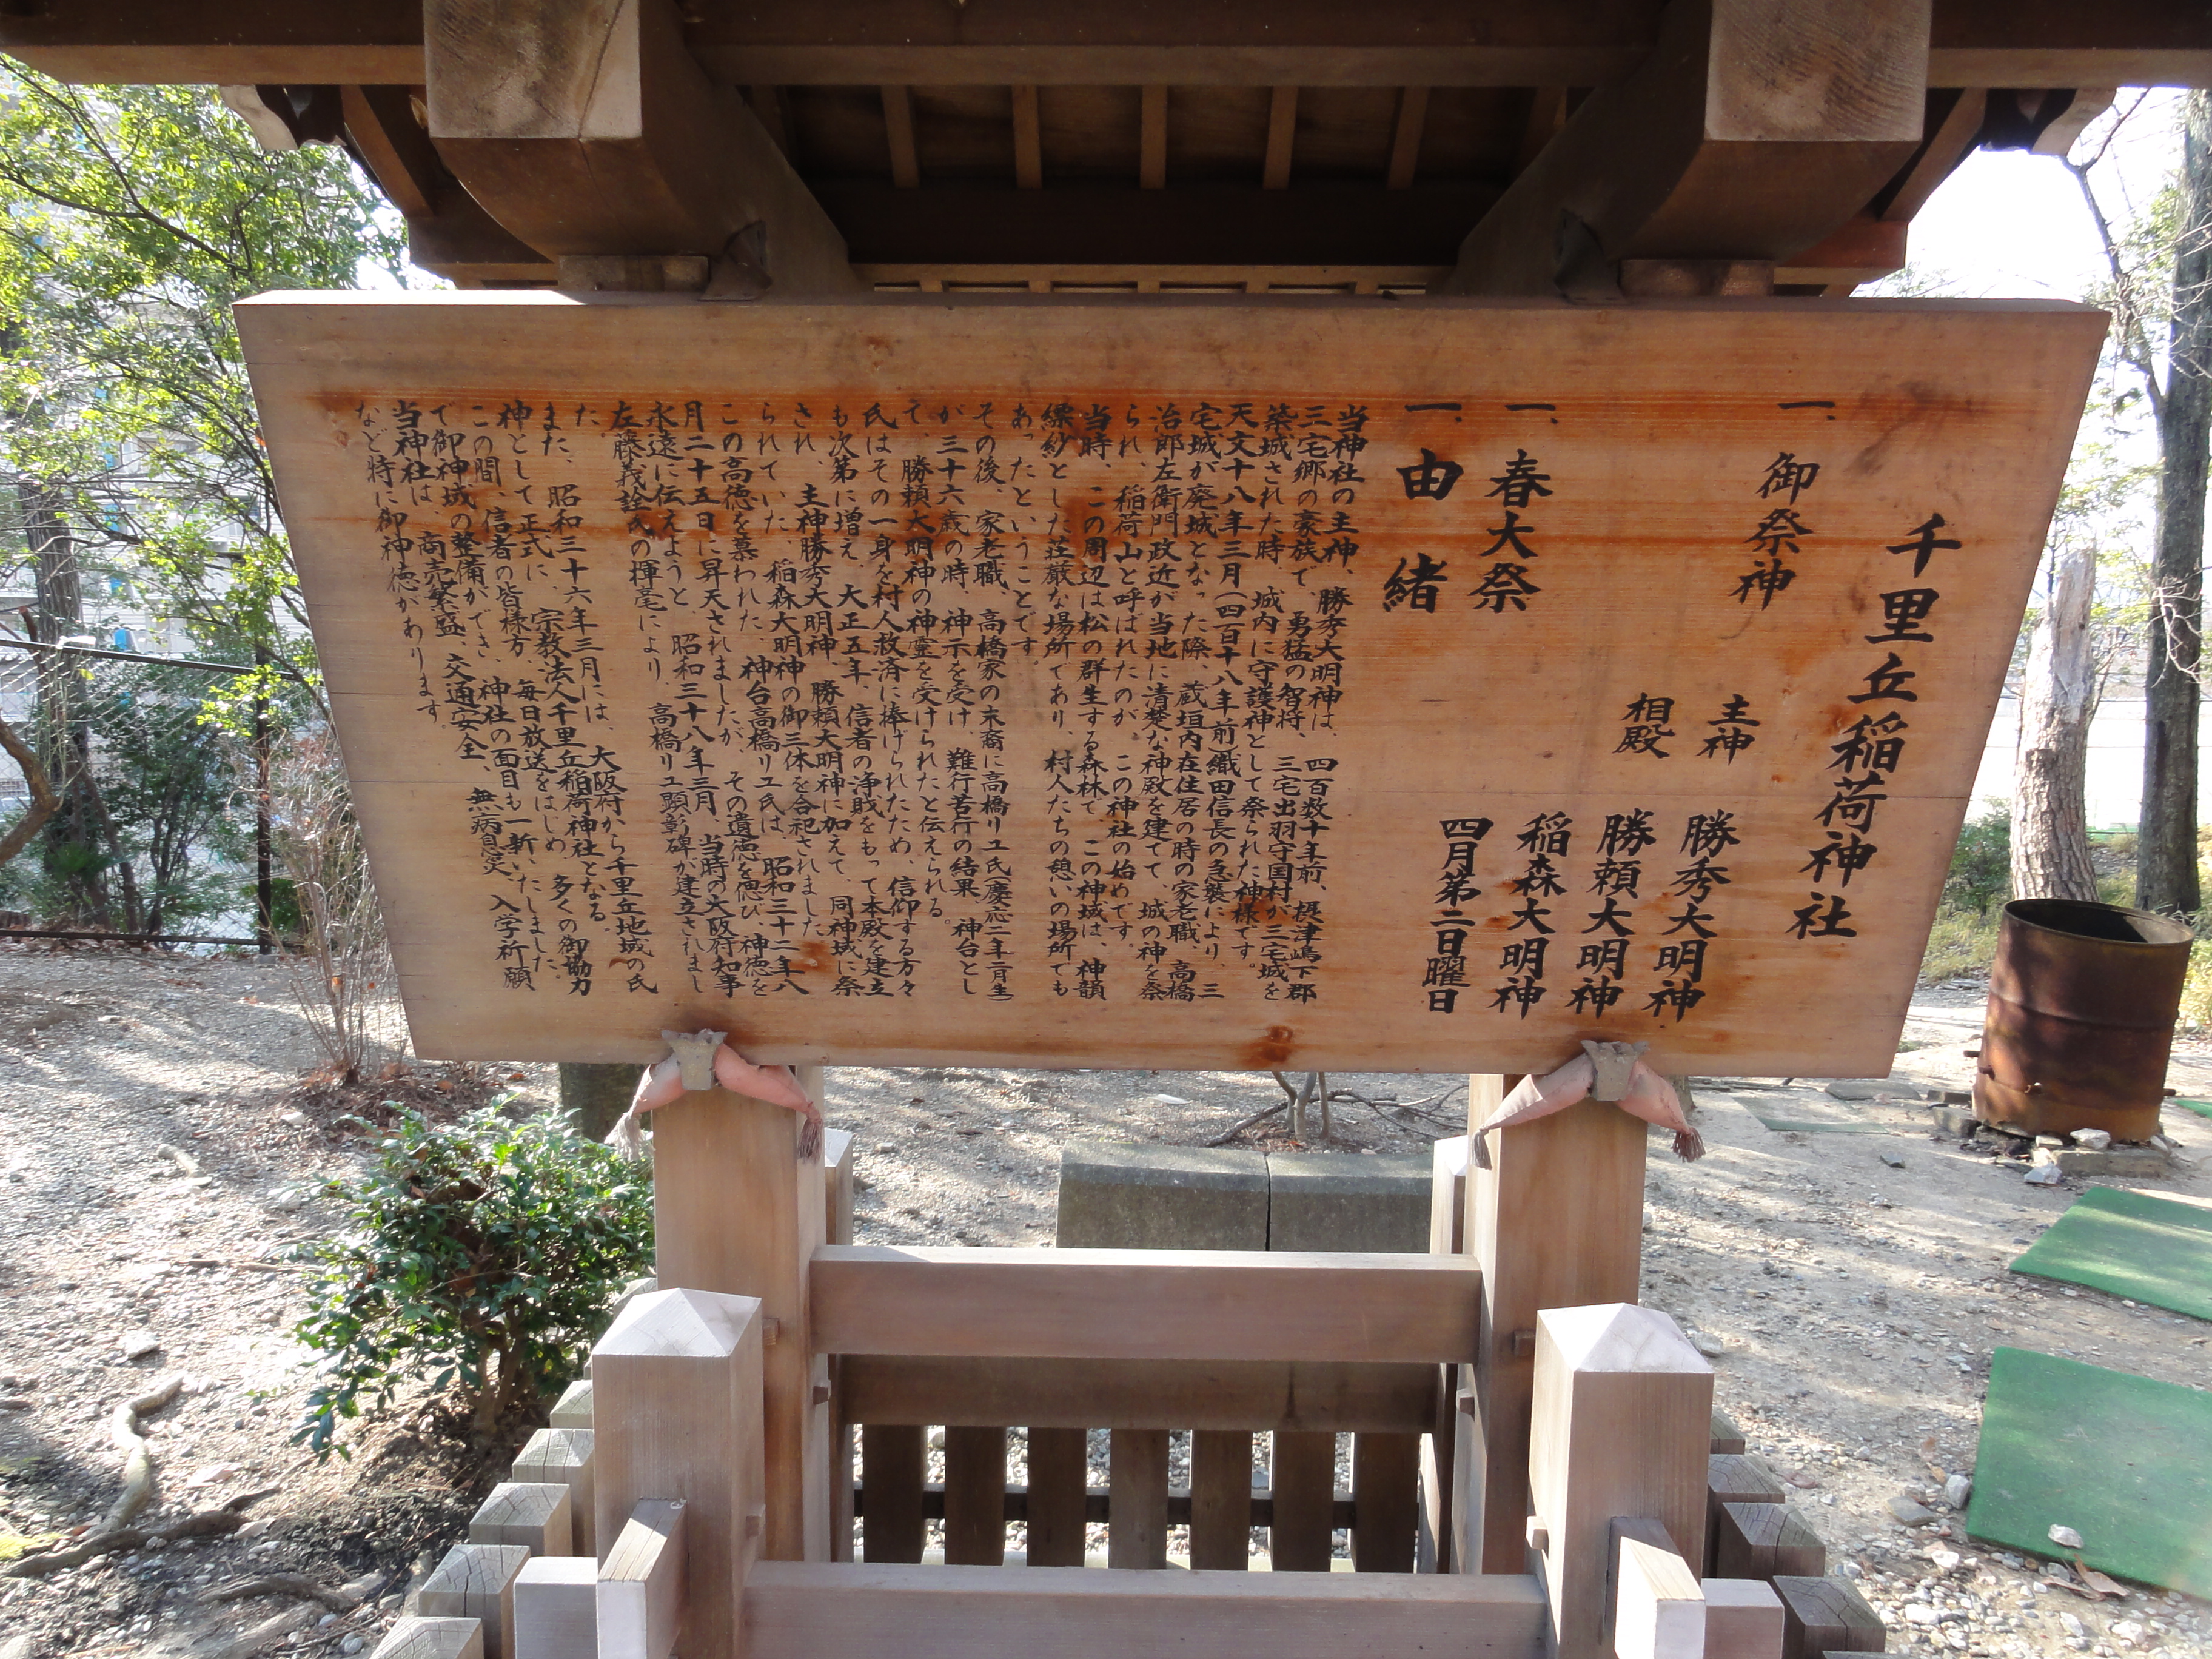 千里丘稲荷神社
一、御祭神 主神 勝秀大明神
相殿 勝頼大明神
稲森大明神
一、春大祭 四月第二日曜日
一、由緒
当神社の主神、勝秀大明神は、四百数十年前、摂津嶋下郡
三宅郷の豪族で、勇猛の智将、三宅出羽守国村が三宅城を
築城された時、城内に守護神として祭られた神様です。
天文十八年三月(四百十八年前)織田信長の急襲により、三
宅城が廃城となった際、蔵垣内在住居の時の家老職、高橋
治郎左衛門政近が当地に清楚な神殿を建てて、城の神を祭
られ、稲荷山と呼ばれたのが、この神社の始めです。
当時、この周辺は松の群生する森林で、この神域は、神韻
縹紗とした荘厳な場所であり、村人たちの憩いの場所でも
あったということです。
その後、家老職、高橋家の末裔に高橋リユ氏(慶応二年二月生)
が三十六歳の時、神示を受け、難行苦行の結果、神台とし
て、勝頼大明神の神霊を受けられたと伝えられる。
氏はその一身を村人救済に捧げられたため、信仰する方々
も次第に増え、大正五年、信者の浄財をもって本殿を建立
され、主神勝秀大明神、勝頼大明神に加えて、同神域に祭
られていた、稲森大明神の御三体を合祀されました。
この高徳を慕われた、神台高橋リユ氏は、昭和三十二年八
月二十五日に昇天されましたが、その遺徳を偲び、神徳を
永遠に伝えようと、昭和三十八年三月、当時の大阪府知事
左藤義詮氏の揮毫により、高橋リユ顕彰碑が建立されまし
た。
また、昭和三十六年三月には、大阪府から千里丘地域の氏
神として正式に、宗教法人千里丘稲荷神社となる。
この間、信者の皆様方、毎日放送をはじめ、多くの御協力
で御神域の整備ができ、神社の面目も一新いたしました。
当神社は、商売繁盛、交通安全、無病息災、入学祈願
など特に御神徳があります。